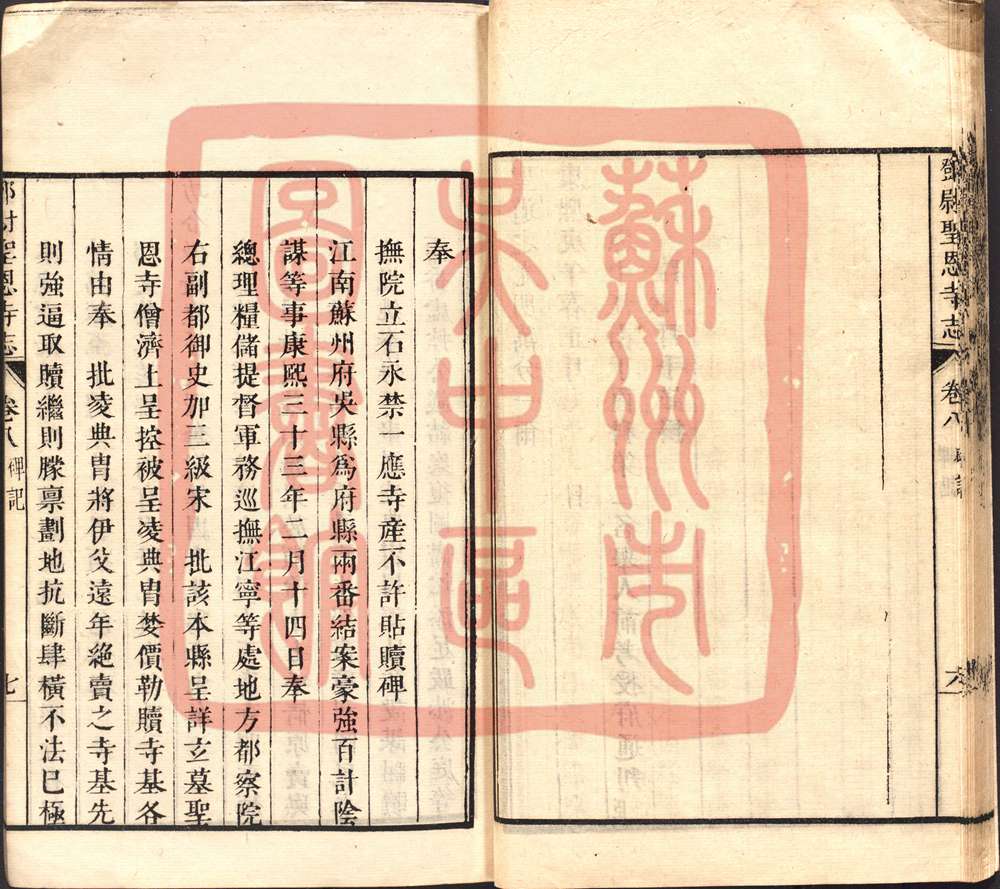 鄧尉聖恩寺志 卷八 六
奉
撫院立石永禁一應寺產不許貼贖碑
江南蘇州府吳縣爲府縣兩番結案豪強百計陰
謀等事康熙三十三年二月十四日奉
總理糧儲提督軍務巡撫江寧等處地方都察院
右副都御史加三級宋 批該本縣呈詳玄墓聖
恩寺僧濟上呈控被呈凌典胄婪價勒贖寺基各
情由奉 批凌典胄將伊父遠年絶賣之寺基先
則強逼取贖繼則朦禀劃地抗斷肆橫不法巳極
聖恩寺志 卷八 碑記 七
蘇州市
吳中區
圖書館